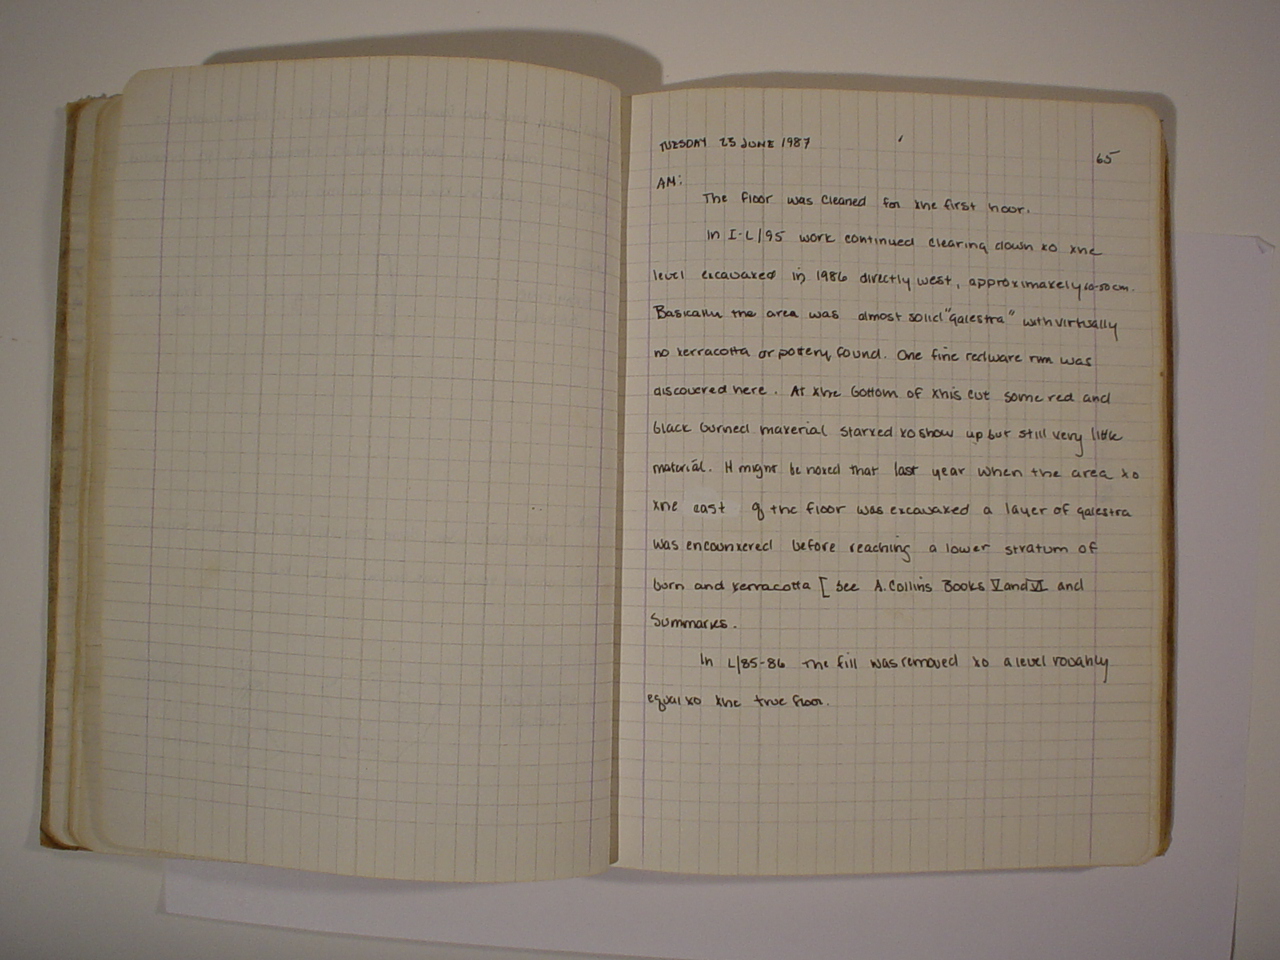 TUESDAY 23 JUNE 1987
65
AM:
The floor was cleaned for the first hour.
In I-L/95 work continued clearing down to the
level excavated in 1986 directly west, approximately 40-50cm.
Basically the area was almost solid "galestra" with virtually
no terracotta or pottery found. One fine redware rim was
discovered here. At the bottom of this cut some red and
black burned material started to show up but still very little
material. It might be noted that last year when the area to
the east of the floor was excavated a layer of galestra
was encountered before reaching a lower stratum of
burn and terracotta [See A. Collins Books V and VI and
Summaries.
In L/85-86 the fill was removed to a level roughly
equal to the true floor.